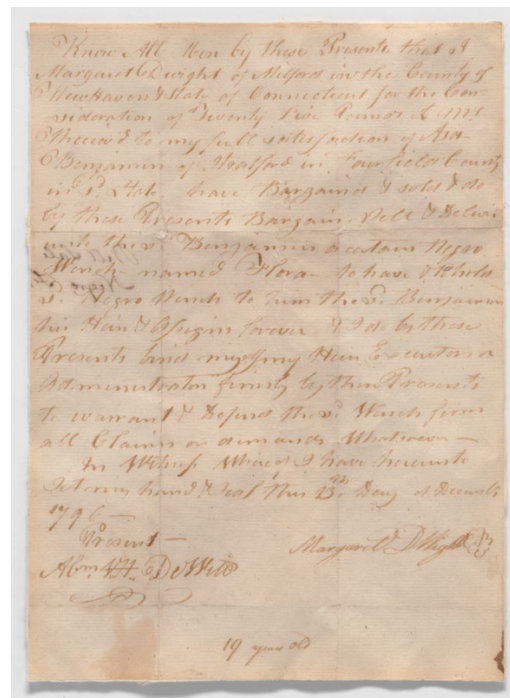 Know All Men by these Presents that I
Margaret Dwight of Milford in the County of
New Haven & State of Connecticut for the Con-
sideration of Seventy Five Pounds
Received to my full satisfaction of Asa
Benjamin of Stratford in Fairfield County
in sd State have Bargaind & sold & do
by these Presents Bargain, Sell & Deliver
unto the sd Benjamin a certain Negro
Wench named Flora - to have & to hold
sd Negro Wench to him the sd Benjamin
his Heirs & Assigns forever & I do by these
Presents bind my Heirs Executors or
Administrators firmly by these Presents
to warrant & Defend the sd Wench from
all Claims or demands Whatsoever -
In Witness Whereof I have hereunto
Set my hand & Seal this Day of Decemb
1796 -
Present -
Margaret DWight
Abm DeWitt
19 years old